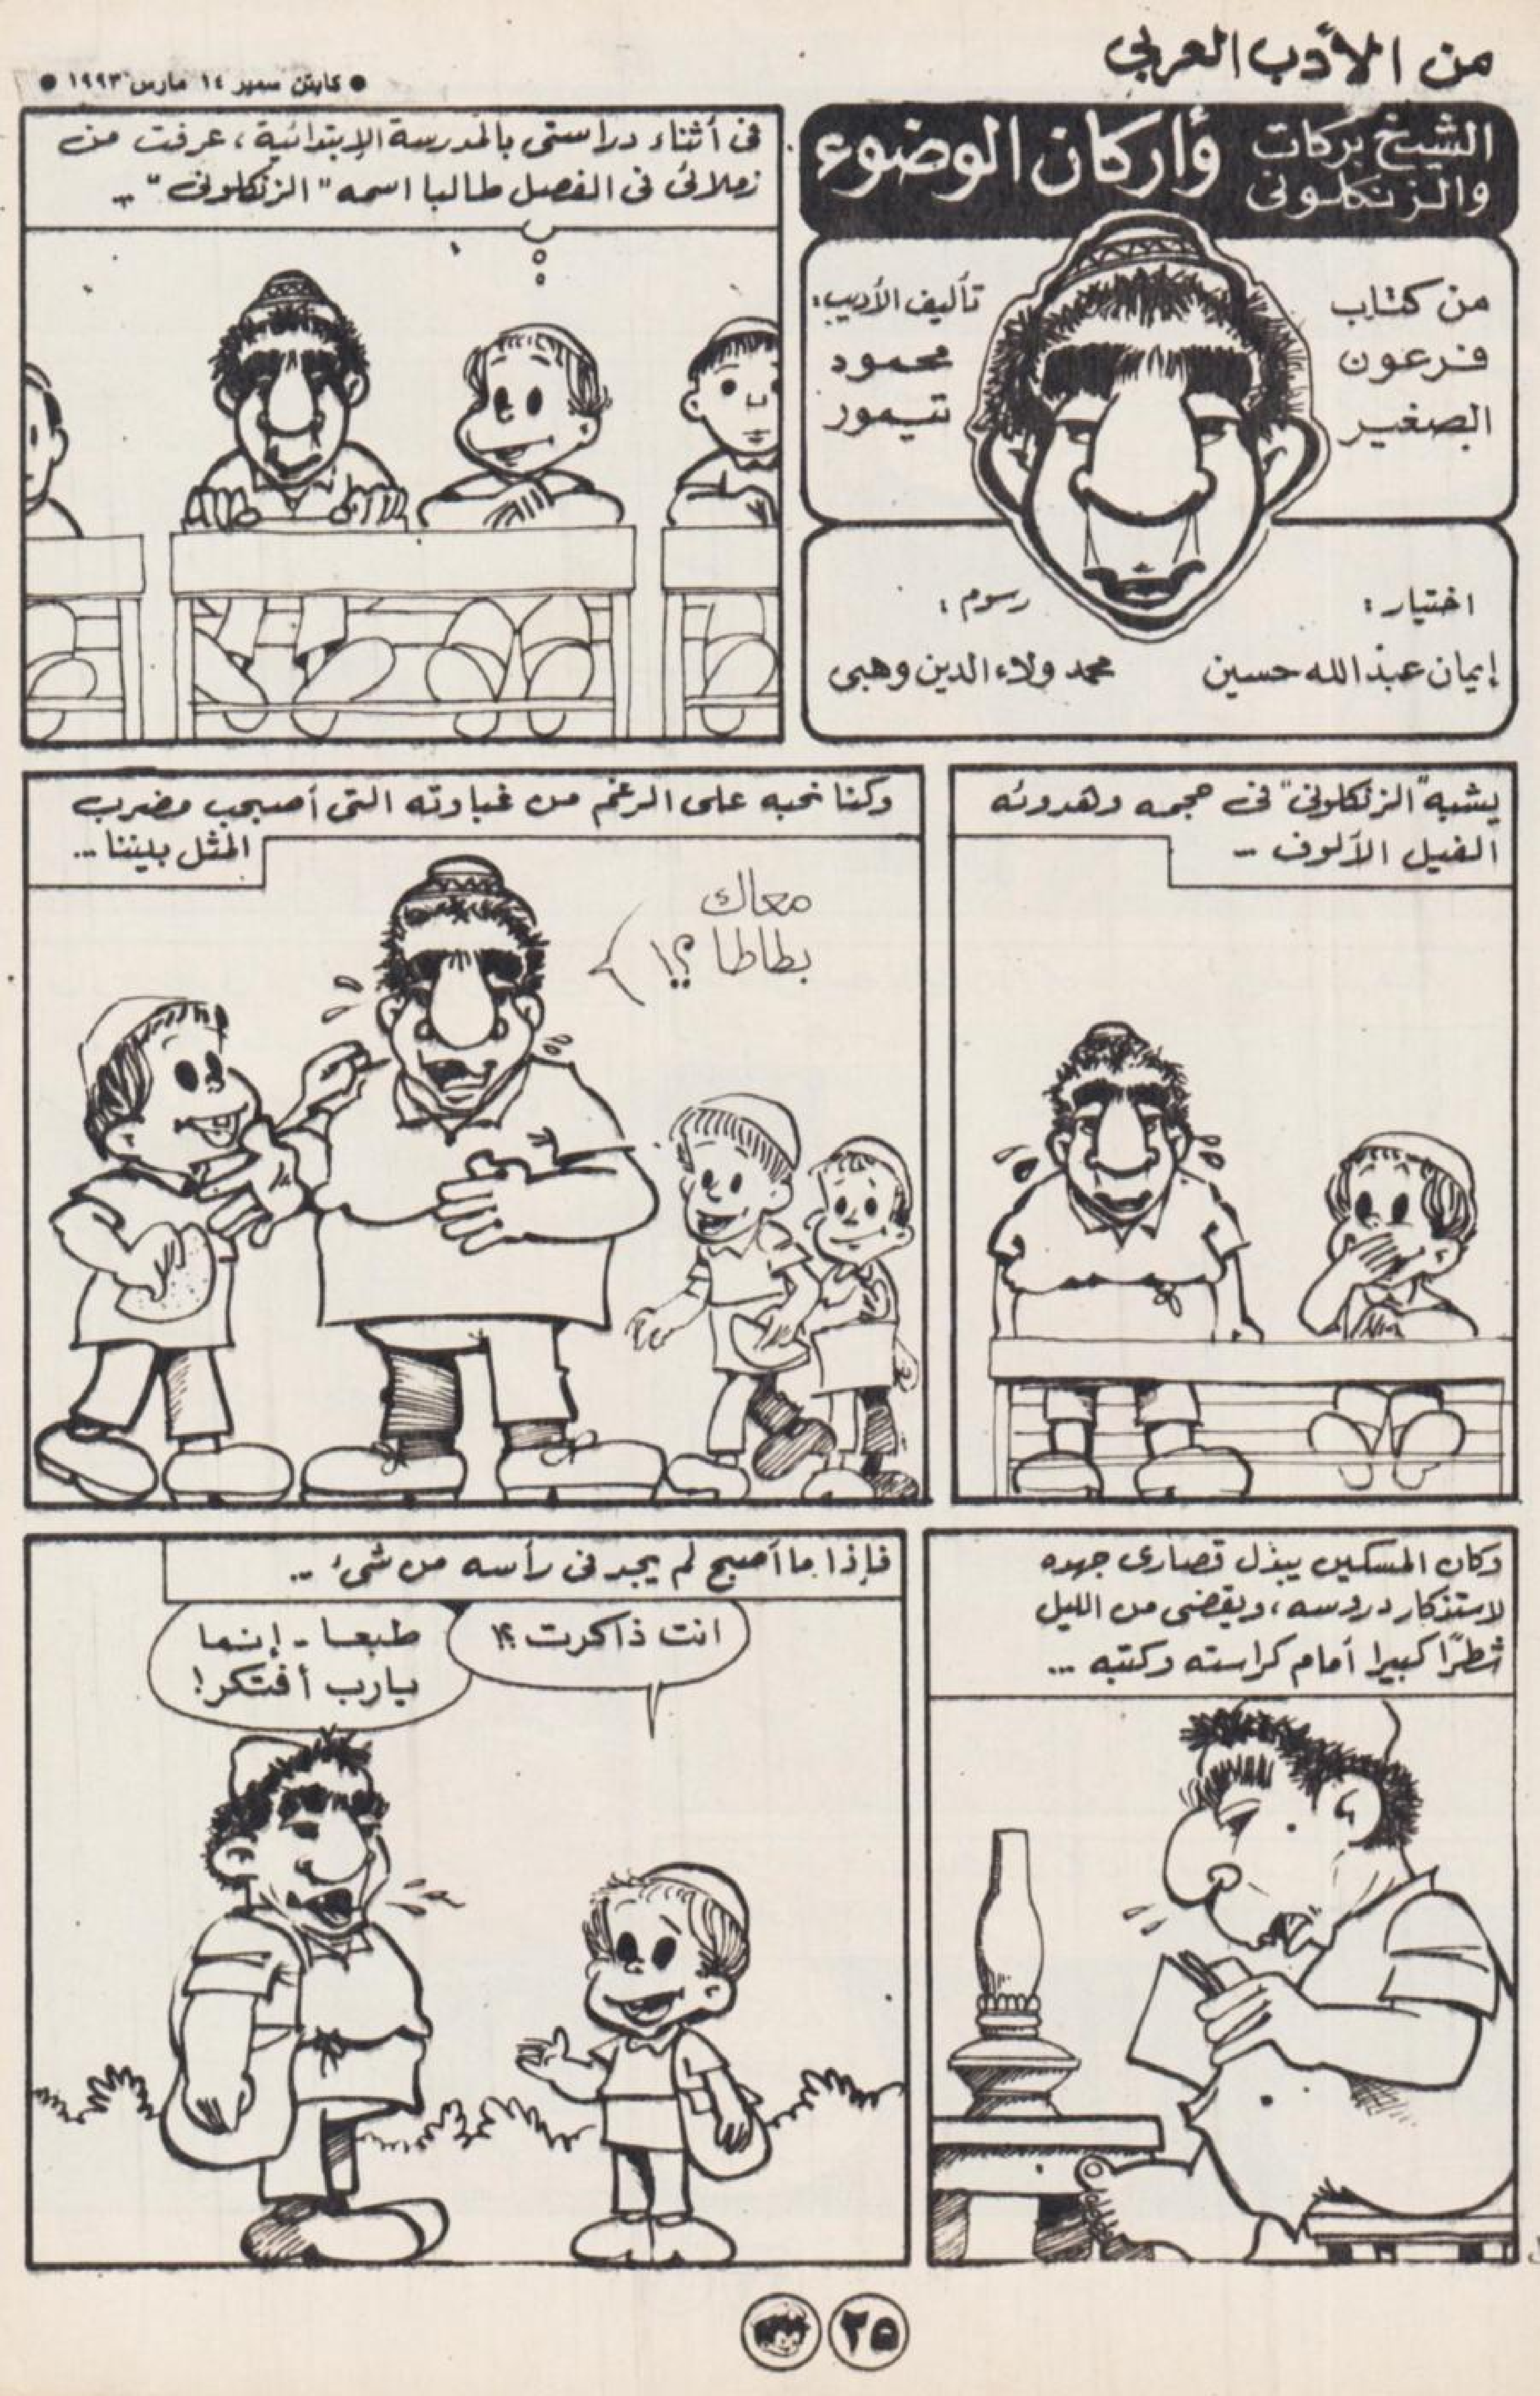 من الأدب العربي
● كابتن سمير ١٤ مارس ١٩٩٣ ●
الشيخ بركات
والزنكلونى
وأركان الوضوء
من كتاب
فرعون
الصغير
تأليف الأديب:
محمود
تيمور
اختيار:
إيمان عبد الله حسين
رسوم:
محمد ولاء الدين وهبى
فى أثناء دراستى بالمدرسة الإبتدائية، عرفت من
زملائى فى الفصل طالبا اسمه "الزنكلونى" ..
يشبه "الزنكلونى" فى حجمه وهدوئه
الفيل الألوف ..
وكنا نحبه على الرغم من غباوته التى أصبحت مضرب
المثل بيننا ...
معاك
بطاطا ؟!
وكان المسكين يبذل قصارى جهده
لاستذكار دروسه، ويقضى من الليل
شطرًا كبيرا أمام كراسته وكتبه ...
فإذا ما أصبح لم يجد فى رأسه من شىء ..
انت ذاكرت ؟!
طبعا - إنما
يارب أفتكر!
٢٥